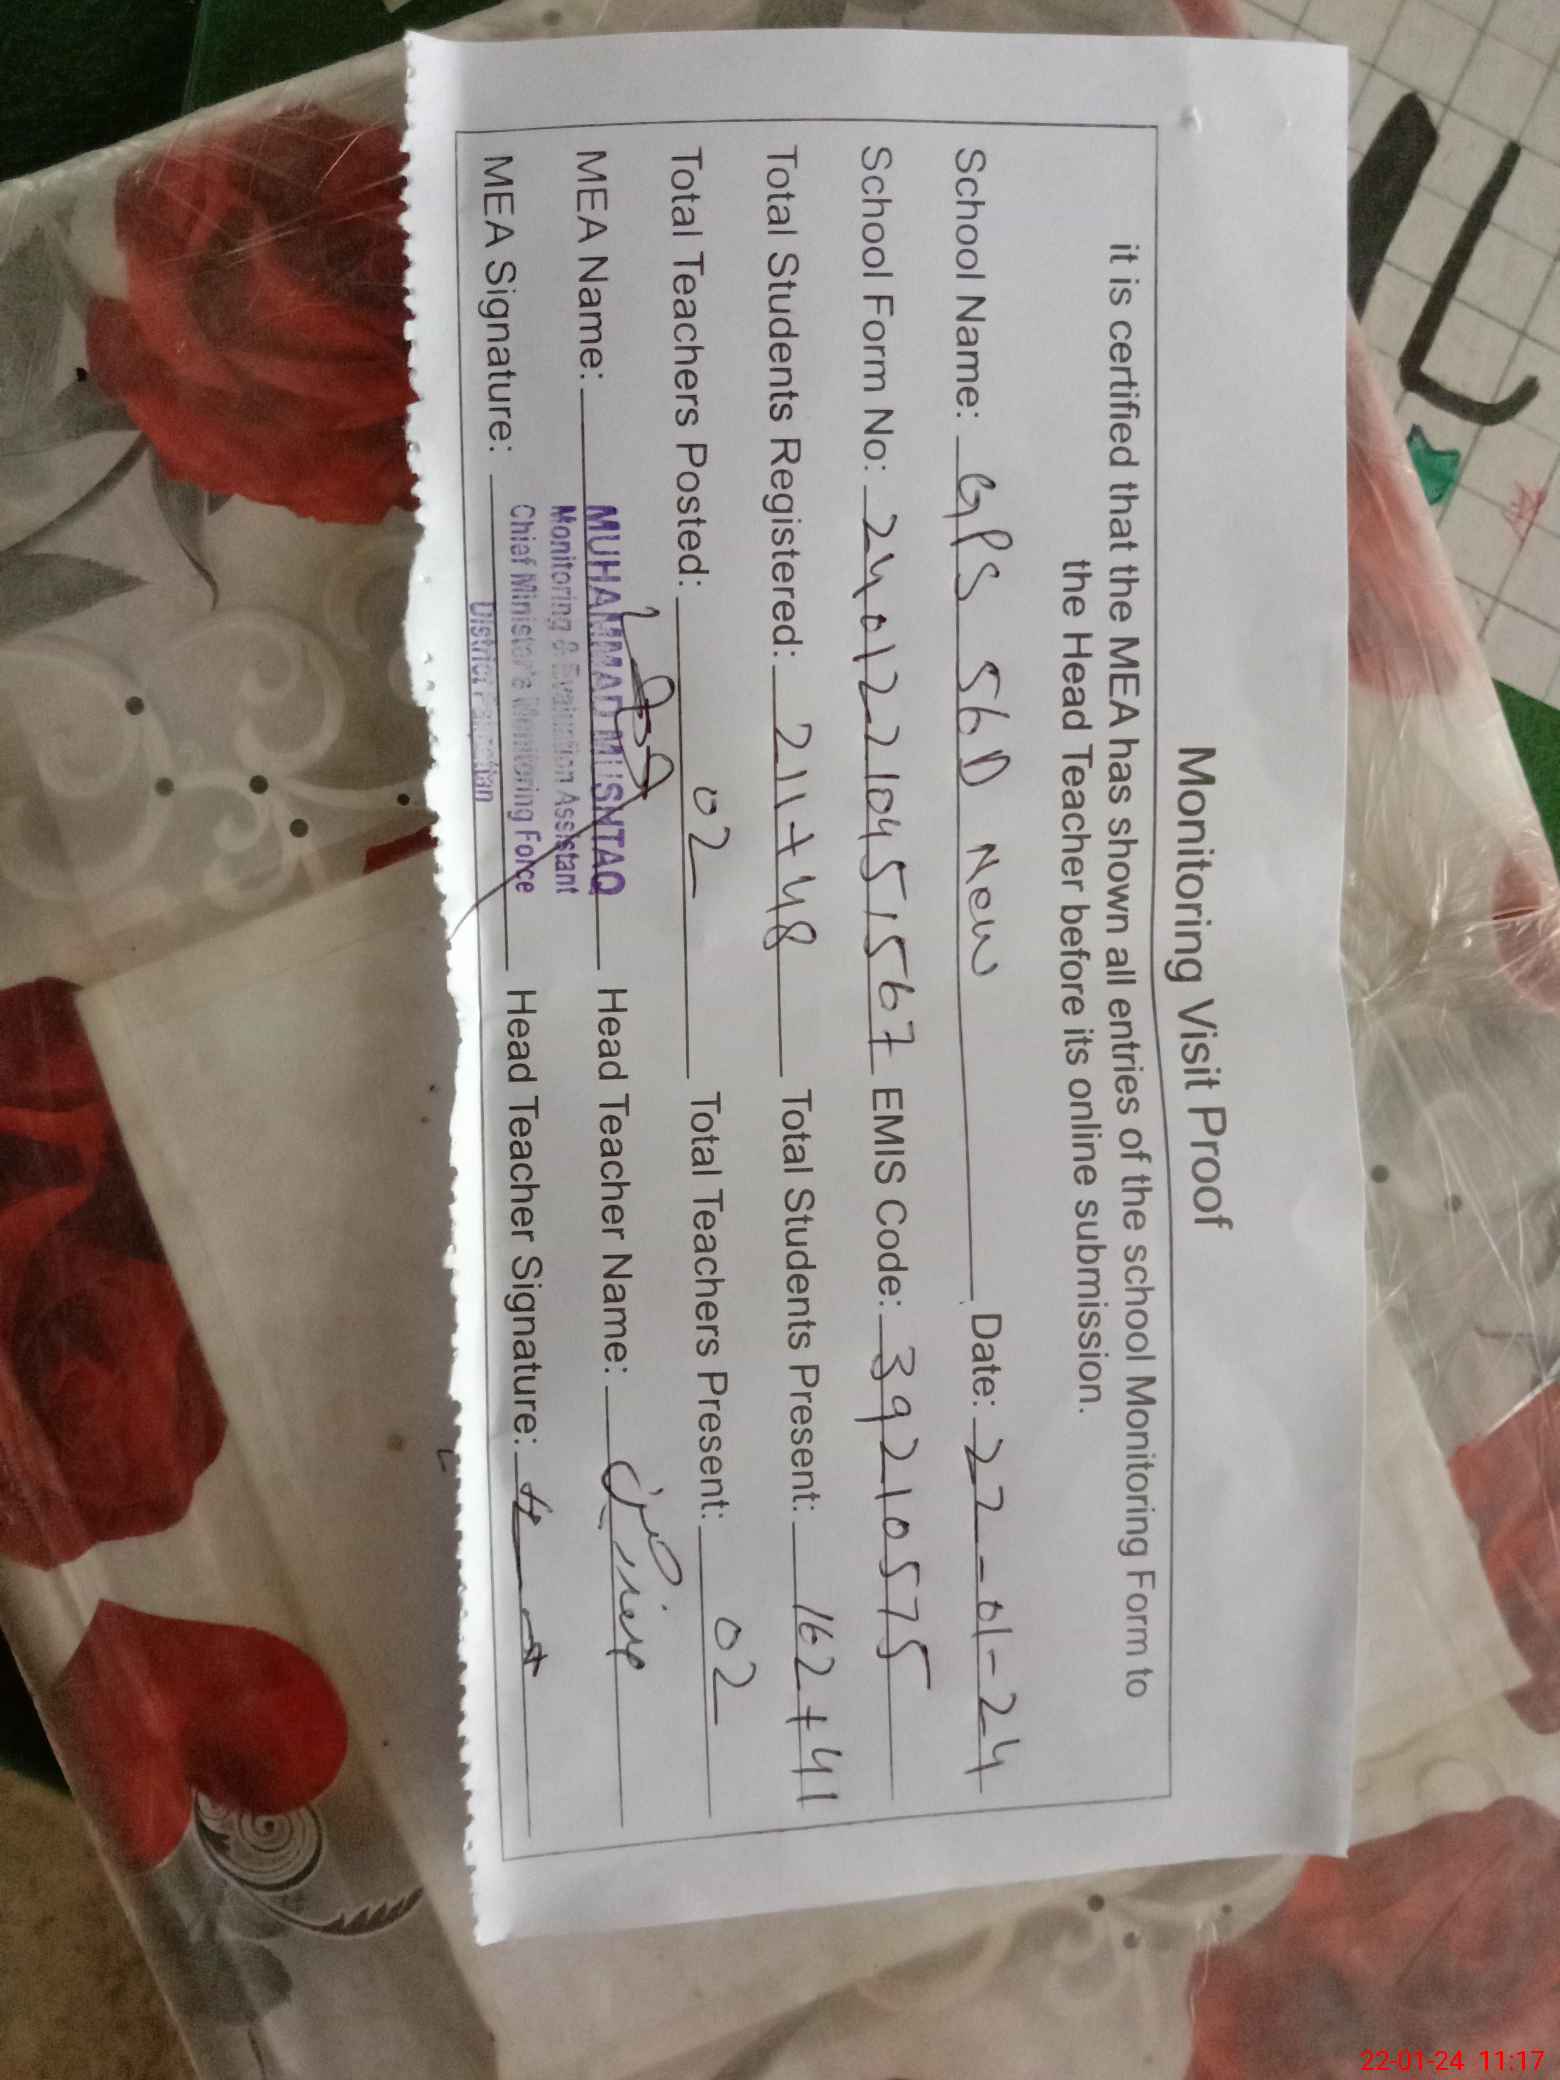 Monitoring Visit Proof
it is certified that the MEA has shown all entries of the school Monitoring Form to
the Head Teacher before its online submission.
School Name: GPS 56D New Date: 22-01-24
School Form No: 24012210451567 EMIS Code: 39210575
Total Students Registered: 211+48 Total Students Present: 162+41
Total Teachers Posted: 02 Total Teachers Present: 02
MEA Name: MUHAMMAD MUSHTAQ Head Teacher Name:
Monitoring & Evaluation Assistant
MEA Signature: Chief Minister's Monitoring Force Head Teacher Signature:
District Pakpattan
22-01-24 11:17